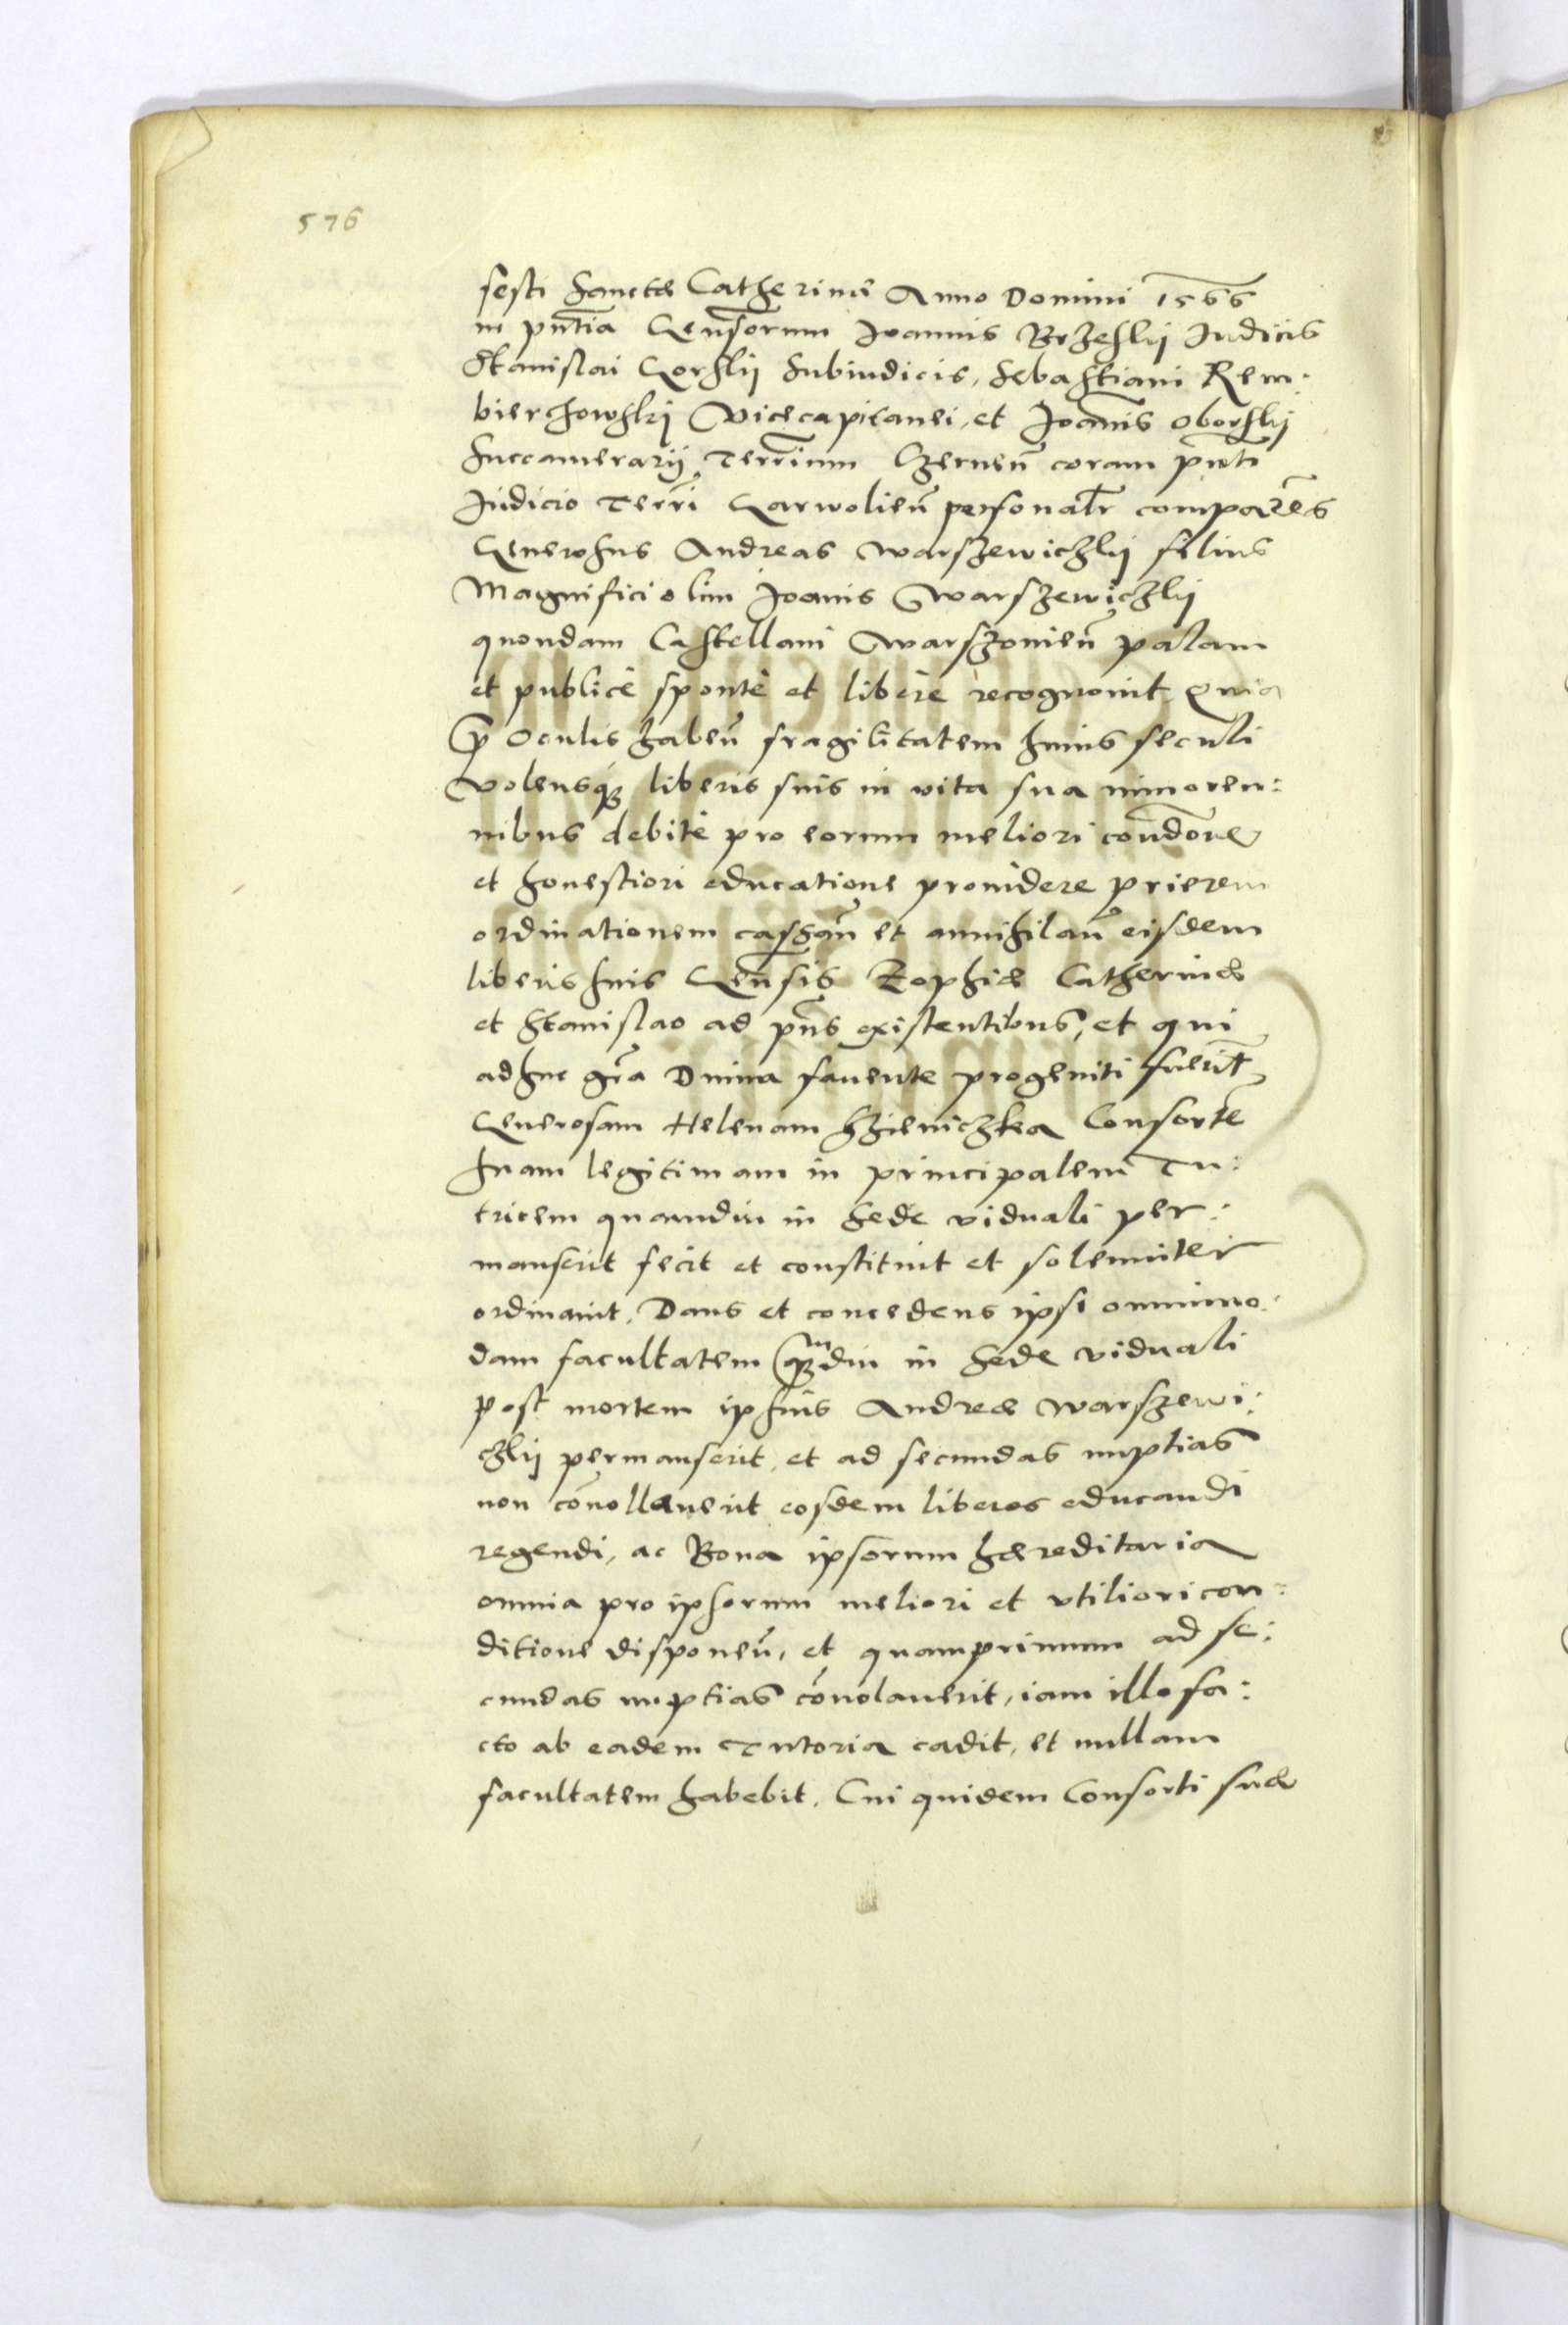 576
festi Sanctæ Catherinæ Anno Domini 1566
in pñtia Gensorum Joannis Brzeskij Judicis
Stanislai Gorskij Subiudicis, Sebastiani Rem:
bierchowskj Vicecapitanei, et Joãnis Oborskij
Succamerarij Terrium Czerneñ coram pñti
Judicio Terri Garwolieñ personalr comparẽs
Generosus Andreas Warszewiczkij filius
Magnifici olim Joanis Warszewiczkij
quondam Castellani Warszovieñ palam
et publicè spontè et liberè recognovit Quia
p̃ Oculis habeñ fragilitatem huius seculi
Volensq̃ liberis suis in vita sua minoren:
nibus debitè pro eorum meliori condõne
et honestiori educatione providere priorem
ordinationem cassãn et annihilañ eisdem
liberis suis Gensis Zophiæ Catherinæ
et Stanislao ad pñs existentibus, et qui
adhuc gr̃a Divina favente progeniti fuerĩt
Generosam Helenam Kzieniczka Consortẽ
suam legitimam in principalem Tu:
tricem quamdiu in sede viduali per:
manserit fecit et constituit et solemniter
ordinavit. Dans et concedens ipsi omnimo:
dam facultatem q̃mdiu in sede viduali
post mortem ipsius Andreæ Warszewi:
czkij permanserit, et ad secundas nuptias
non cõnollaverit eosdem liberos educandi
regendi, ac Bona ipsorum hæreditaria
omnia pro ipsorum meliori et utiliori con:
ditione disponeñ, et quamprimum ad se:
cundas nuptias cõnolaverit, iam illo fa:
cto ab eadem Tutoria cadit, et nullam
facultatem habebit. Cui quidem Consorti suæ